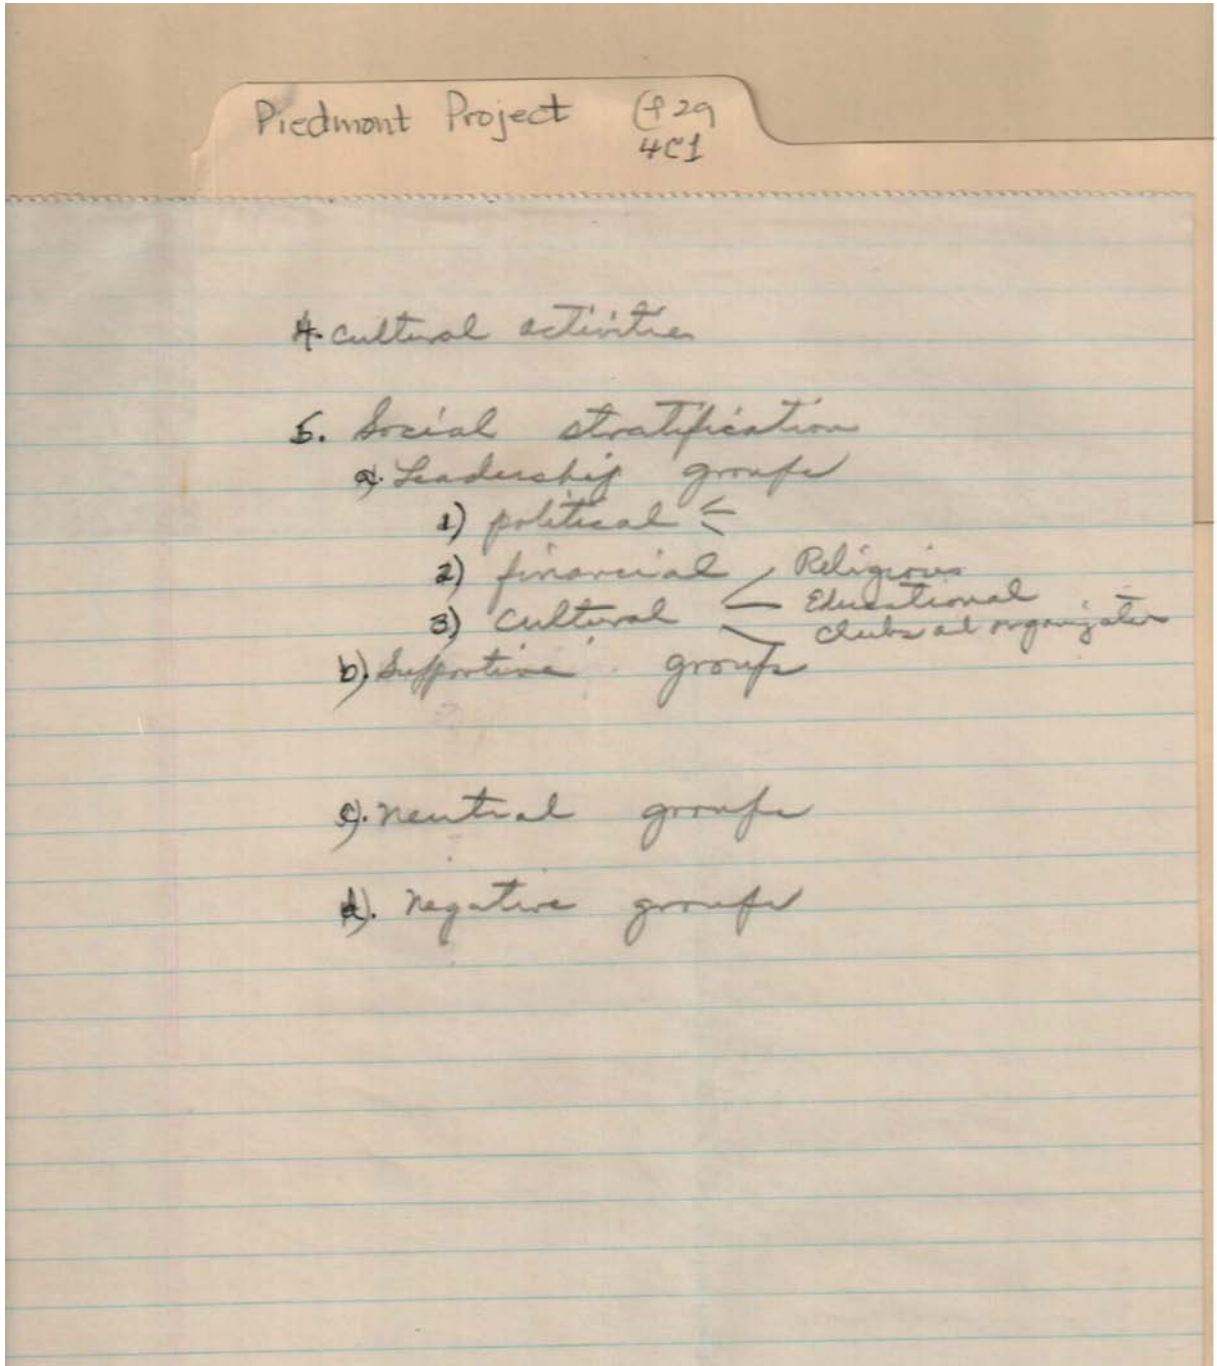 Piedmont Project
4C1
4. Cultural activities
5. Social stratification
a. Leadership groups
1) political
2) financial
Religious
3) Cultural
Educational
Clubs organization
b). Supportive groups
c). neutral groups
d). negative groups